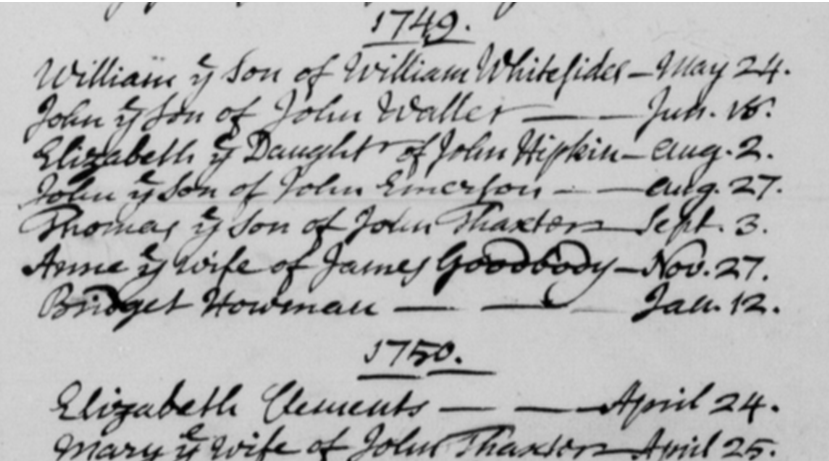 1749.
William yͤ Son of William Whitesides - May 24.
John yͤ Son of John Waller - Jun. 18.
Elizabeth yͤ Daughtr of John Hipkin - Aug. 2.
John yͤ Son of John Emerson - Aug. 27.
Thomas yͤ Son of John Thaxter Sept. 3.
Anne yͤ Wife of James Goodbody - Nov. 27.
Bridget Howman - Jan. 12.
1750.
Elizabeth Clements - April 24.
Mary yͤ Wife of John Thaxter April 25.